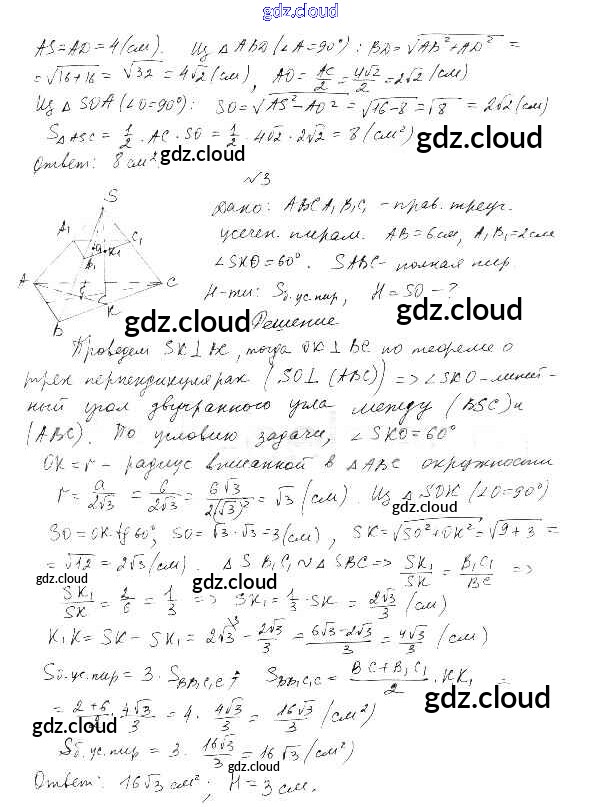 gdz.cloud
AS=AD=4(см). Из △ABD(∠A=90°): BD=√AB²+AD² =
=√16+16 = √32 = 4√2(см), AO=AC/2=4√2/2=2√2(см)
Из △SOA(∠O=90°): SO=√AS²-AO² =√16-8=√8 = 2√2(см)
S△ASC = 1/2 · AC · SO = 1/2 · 4√2 · 2√2 = 8(см²)
Ответ: 8 см².
gdz.cloud
N3
S
Дано: ABCA₁B₁C₁ - прав. треуг.
A₁ C₁
K₁
B₁
усечен. пирам. AB=6см, A₁B₁=2см
gdz.cloud
∠SKO=60°. SABC- полная пир
A C
K
B
Н-ти: Sб.ус.пир, H=SO-?
gdz.cloud gdz.cloud
Решение
Проведем SK⊥BC, тогда OK⊥BC по теореме о
трех перпендикулярах (SO⊥(ABC)) => ∠SKO-линей-
gdz.cloud
ный угол двугранного угла между (BSC) и
(ABC). По условию задачи, ∠SKO=60°
OK=r- радиус вписанной в △ABC окружности
r=a/2√3 = 6/2√3 = 6√3/2(√3)² = √3 (см). Из △SOK(∠O=90°)
gdz.cloud
SO=OK·tg60°, SO=√3·√3=3(см), SK=√SO²+OK²=√9+3 =
= √12 = 2√3(см). △SB₁C₁∾△SBC=> SK₁/SK = B₁C₁/BC =>
gdz.cloud gdz.cloud
gdz.cloud
SK₁/SK = 2/6 = 1/3 => SK₁=1/3·SK = 2√3/3 (см)
K₁K= SK - SK₁= 2√3 - 2√3/3 = 6√3-2√3/3 = 4√3/3 (см)
gdz.cloud
Sб.ус.пир= 3 · SBB₁C₁C; SBB₁C₁C= BC+B₁C₁/2 · KK₁ =
gdz.cloud
= 2+6/2 · 4√3/3 = 4 · 4√3/3 = 16√3/3 (см²)
gdz.cloud
Sб.ус.пир= 3 · 16√3/3 = 16√3 (см²)
gdz.cloud
Ответ: 16√3 см²; H=3см.
gdz.cloud
gdz.cloud